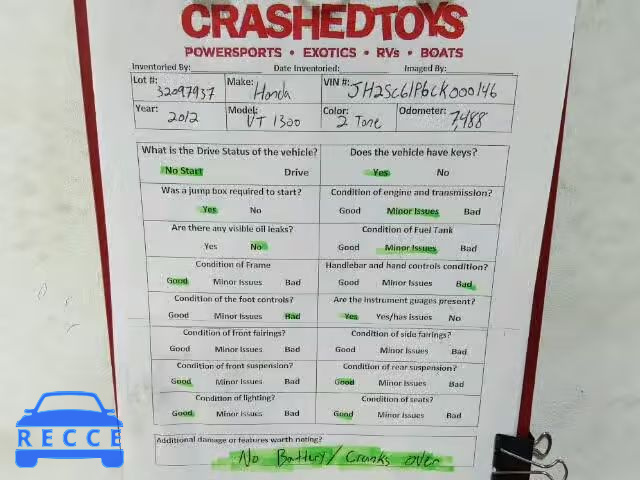 CRASHEDTOYS
POWERSPORTS • EXOTICS • RVs • BOATS
Inventoried By: Date Inventoried: Imaged By:
Lot #: 32097937 Make: Honda VIN #: JH2SC61P6CK000146
Year: 2012 Model: VT 1300 Color: 2 Tone Odometer: 7,488
What is the Drive Status of the vehicle? Does the vehicle have keys?
No Start Drive Yes No
Was a jump box required to start? Condition of engine and transmission?
Yes No Good Minor Issues Bad
Are there any visible oil leaks? Condition of Fuel Tank
Yes No Good Minor Issues Bad
Condition of Frame Handlebar and hand controls condition?
Good Minor Issues Bad Good Minor Issues Bad
Condition of the foot controls? Are the instrument guages present?
Good Minor Issues Bad Yes Yes/has issues No
Condition of front fairings? Condition of side fairings?
Good Minor Issues Bad Good Minor Issues Bad
Condition of front suspension? Condition of rear suspension?
Good Minor Issues Bad Good Minor Issues Bad
Condition of lighting? Condition of seats?
Good Minor Issues Bad Good Minor Issues Bad
Additional damage or features worth noting?
No Battery/ Cranks over
RECCE